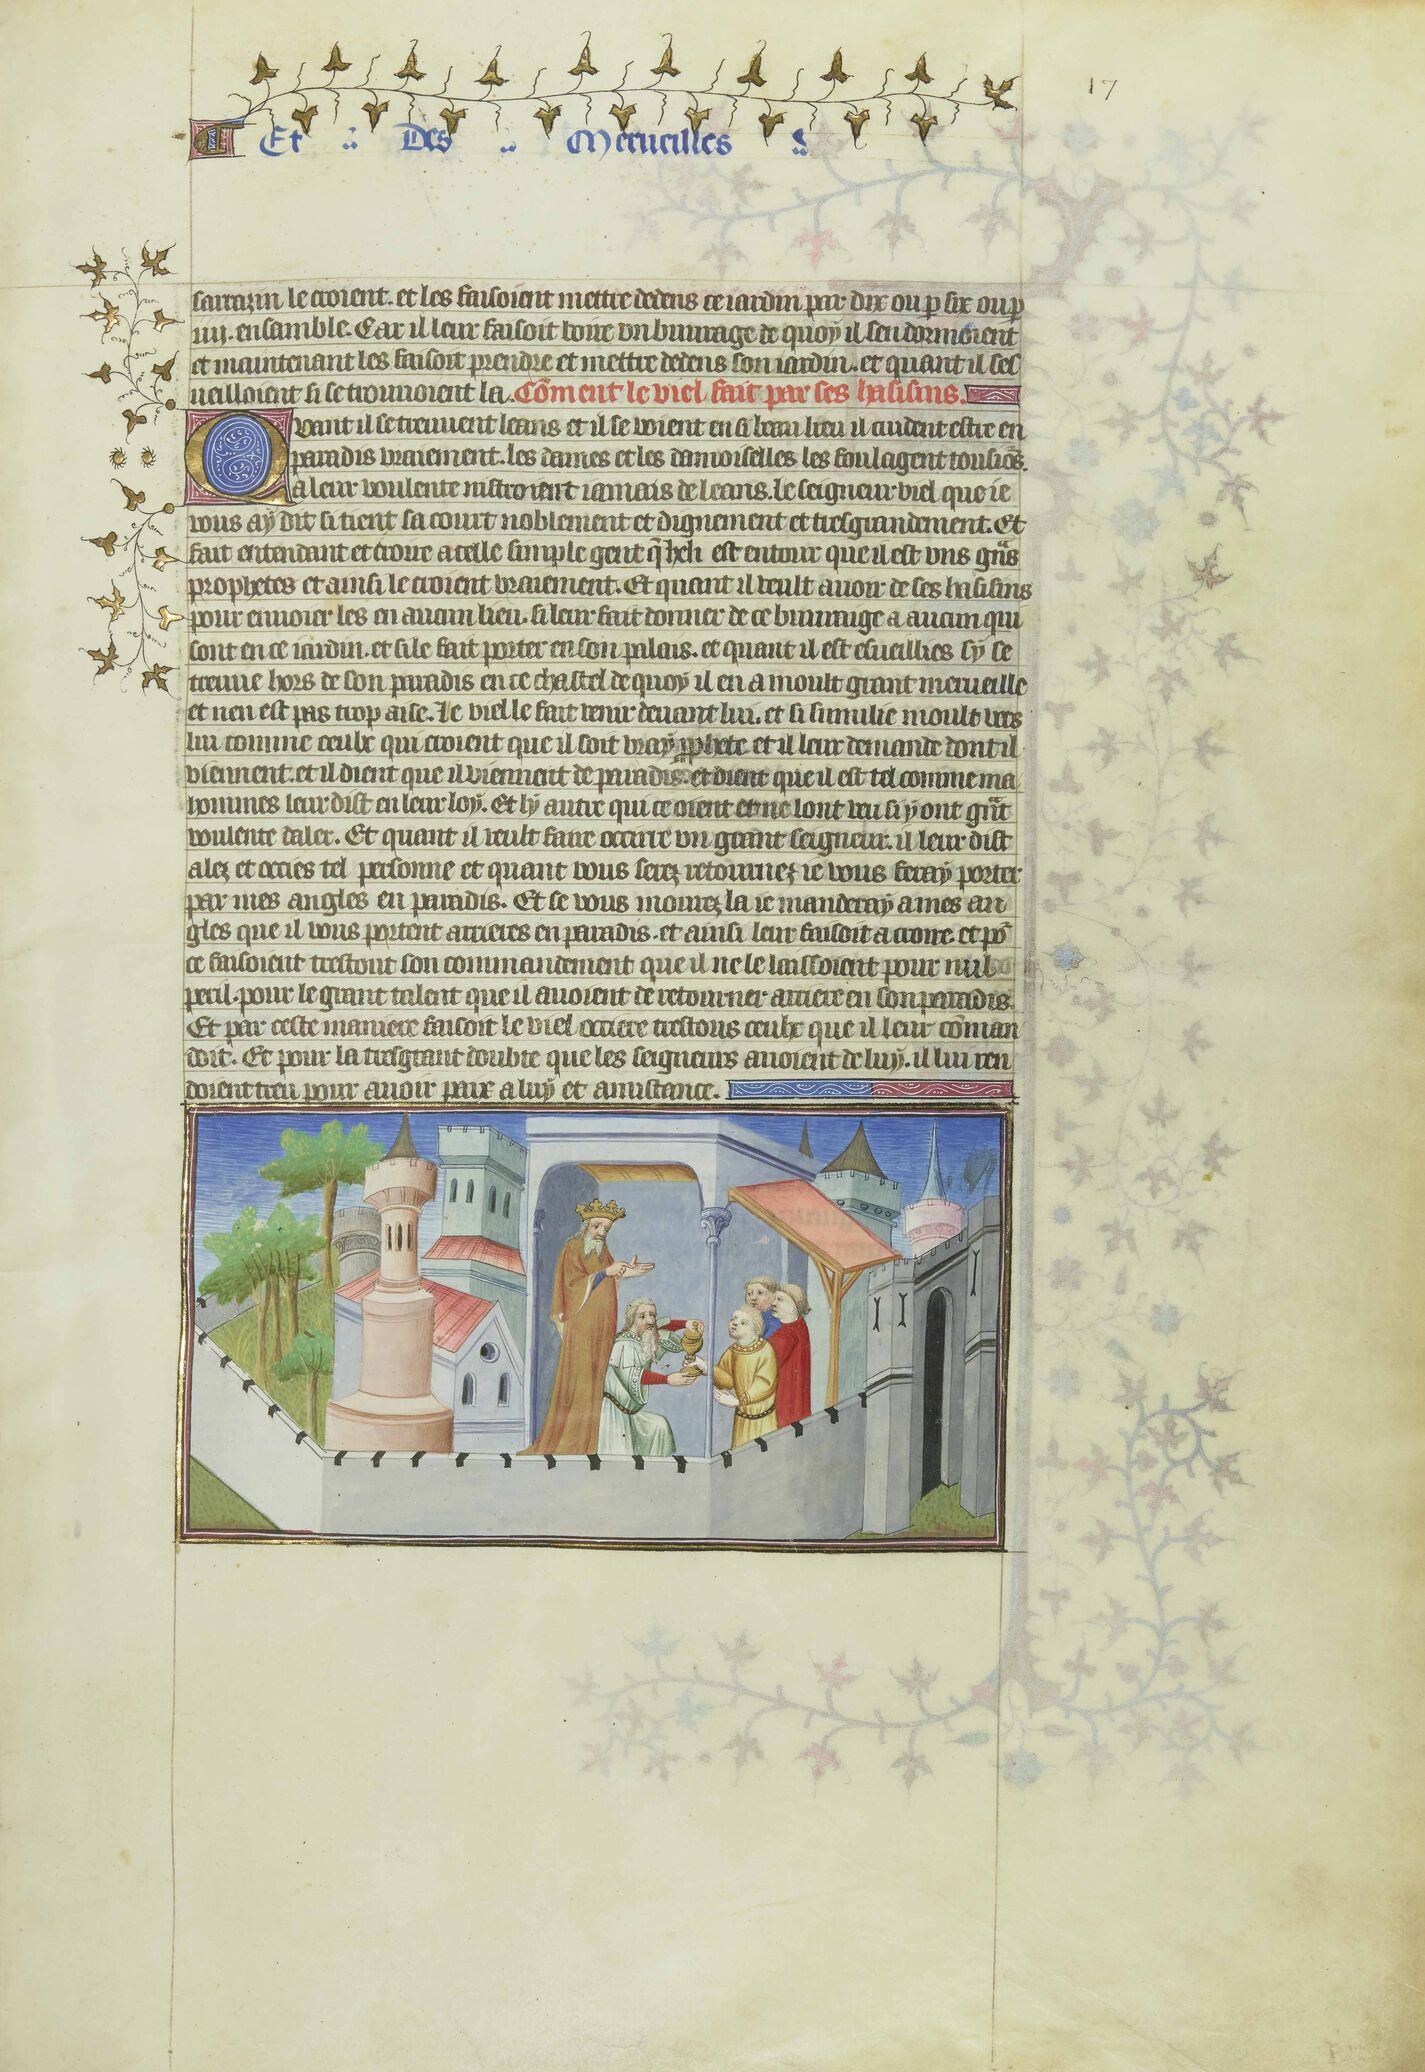 17
Et Des Merueilles
sarrazin le croient. et les faisoient mettre dedens ce iardin par dix ou p six ou p
iiij. ensamble. Car il leur faisoit boire vn buurage de quoy il sen dormoient
et maintenant les faisoit prendre et mettre dedens son iardin. et quant il ses
ueilloient si se trouuoient la. Cõment le viel fait par ses hasisins.
Quant il se treuuent leans et il se voient en si beau lieu il cuident estre en
paradis vraiement. les dames et les damoiselles les soulagent tousiõs.
a leur voulente nistroient iamais de leans. le seigneur viel que ie
vous ay dit si tient sa court noblement et dignement et tresgrandement. Et
fait entendant et croire a celle simple gent q̃ est entour que il est vns grãs
prophetes et ainsi le croient vraiement. Et quant il veult auoir de ses hasisins
pour enuoier les en aucun lieu. si leur fait donner de ce buuraige a aucun qui
sont en ce iardin. et si le fait porter en son palais. et quant il est esueillies sy se
treuue hors de son paradis en ce chastel de quoy il en a moult grant merueille
et nen est pas trop aise. le viel le fait venir deuant lui. et si sumilie moult vers
lui comme ceulx qui croient que il soit vray pphete et il leur demande dont il
viennent. et il dient que il viennent de paradis. et dient que il est tel comme ma
hommes leur dist en leur loy. Et ly autre qui ce oient et ne lont veu si y ont grãt
voulente daler. Et quant il veult faire occirre vn grant seigneur. il leur dist
alez et occies tel personne et quant vous serez retournez ie vous feray porter
par mes angles en paradis. Et se vous mourez la ie manderay a mes an
gles que il vous portent arrieres en paradis. et ainsi leur faisoit a croire. et põ
ce faisoient trestout son commandement que il ne le laissoient pour nul
peril. pour le grant talent que il auoient de retourner arriere en son paradis.
Et par ceste maniere faisoit le viel occirre trestous ceulx que il leur cõman
doit. Et pour la tresgrant doubte que les seigneurs auoient de luy. il lui ren
doient treu pour auoir paix a luy et amistance.